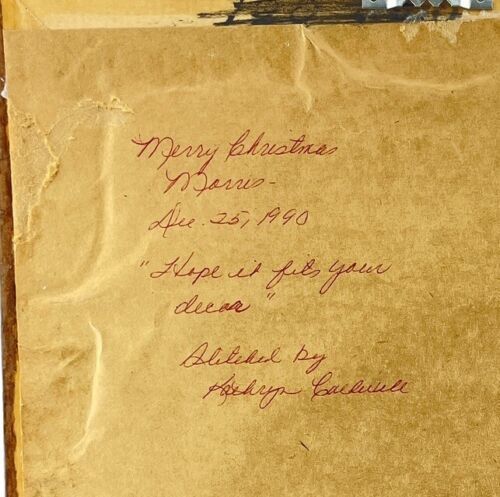 Merry Christmas
Morris-
Dec. 25, 1990
"Hope it fits your
decor"
Stitched by
Kathryn Caldwell